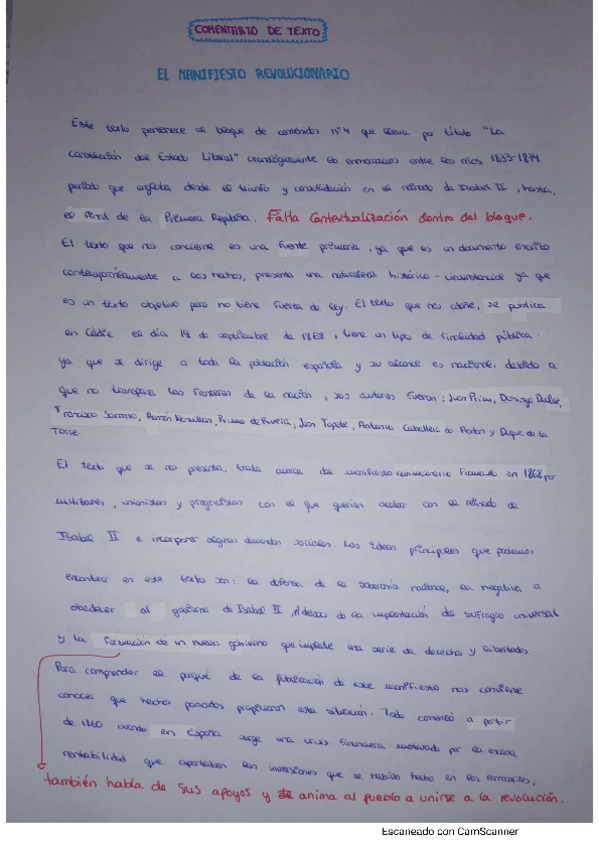 COMENTARIO DE TEXTO
EL MANIFIESTO REVOLUCIONARIO
Este texto pertenece al bloque de contenidos nº4 que lleva por título "La
construcción del Estado Liberal" cronológicamente lo enmarcamos entre los años 1833-1874
período que engloba desde el triunfo y consolidación en el reinado de Isabel II, hasta
el final de la Primera República. Falta Contextualización dentro del bloque.
El texto que nos concierne es una fuente primaria, ya que es un documento escrito
contemporáneamente a los hechos, presenta una naturaleza histórico-circunstancial ya que
es un texto objetivo pero no tiene fuerza de ley. El texto que nos atañe, se publica
en Cádiz el día 19 de septiembre de 1868, tiene un tipo de finalidad pública
ya que se dirige a toda la población española y su alcance es nacional, debido a
que no traspasa las fronteras de la nación, sus autores fueron: Juan Prim, Domingo Dulce,
Francisco Serrano, Ramón Nouvilas, Primo de Rivera, Juan Topete, Antonio Caballero de Rodas y Duque de la
Torre.
El text que se nos presenta, trata acerca del manifiesto revolucionario firmado en 1868 por
militares, unionistas y progresistas con el que querían acabar con el reinado de
Isabel II e incorporar algunas demandas sociales. Las ideas principales que podemos
encontrar en este texto son: la defensa de la soberanía nacional, la negativa a
obedecer al gobierno de Isabel II, el deseo de la implantación de sufragio universal
y la formación de un nuevo gobierno que implante una serie de derechos y libertades.
Para comprender el porqué de la publicación de este manifiesto nos conviene
conocer que hechos pasados propiciaron esta situación. Todo comenzó a partir
de 1860 cuando en España surge una crisis financiera motivada por la escasa
rentabilidad que aportaban las inversiones que se habían hecho en los ferrocarriles,
también habla de sus apoyos y se anima al pueblo a unirse a la revolución.
Escaneado con CamScanner